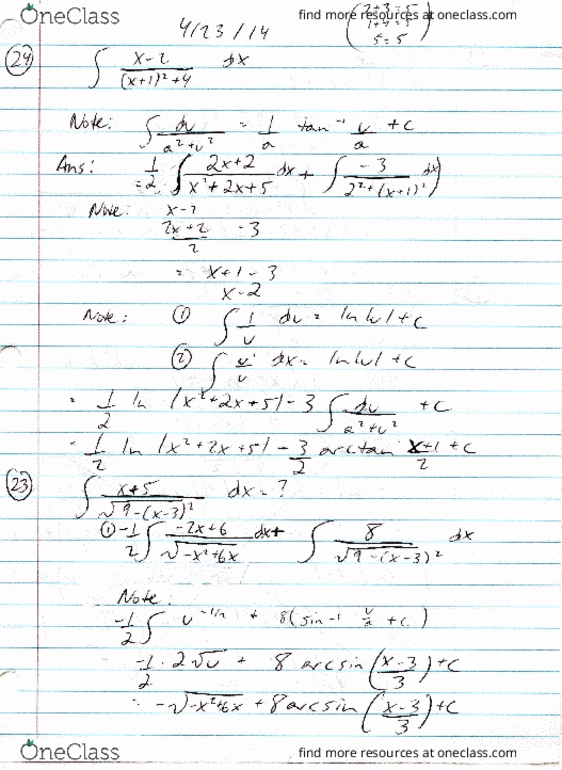 OneClass
find more resources at oneclass.com
4/23/14
5 = 5
24 ∫ x-2 / (x+1)²+4 dx
Note: ∫ du / a²+u² = 1/a tan⁻¹ u/a + c
Ans: = 1/2 ∫ 2x+2 / x²+2x+5 dx + ∫ -3 / 2²+(x+1)² dx
Note: x-2
2x+2 / 2 -3
= x+1-3
x-2
Note: ① ∫ 1/u du = ln|u| + c
② ∫ u'/u dx = ln|u| + c
= 1/2 ln |x²+2x+5| - 3 ∫ du / a²+u² + c
= 1/2 ln |x²+2x+5| - 3/2 arctan x+1/2 + c
23 ∫ x+5 / √9-(x-3)² dx = ?
① -1/2 ∫ -2x+6 / √-x²+6x dx + ∫ 8 / √9-(x-3)² dx
Note:
-1/2 ∫ u^-1/2 + 8(sin⁻¹ u/a + c)
-1/2 · 2√u + 8 arcsin (x-3 / 3) + c
= -√-x²+6x + 8 arcsin (x-3 / 3) + c
OneClass
find more resources at oneclass.com